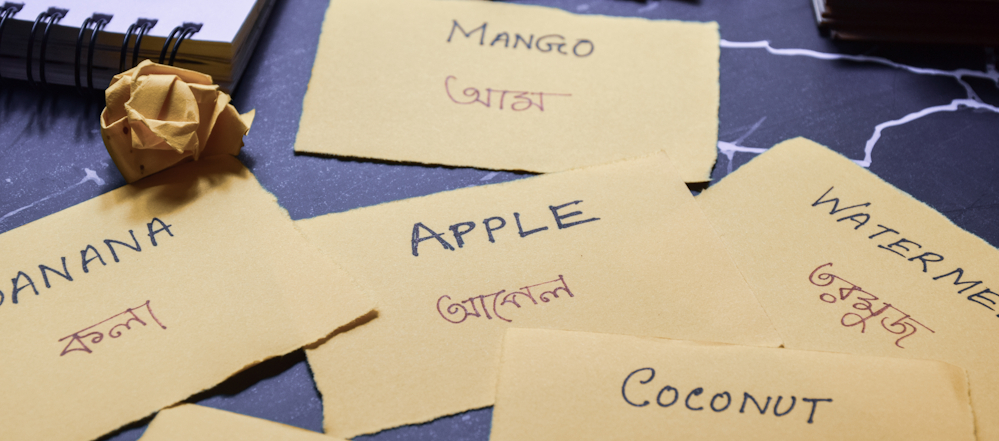 MANGO
আম
BANANA
কলা
APPLE
আপেল
WATERME
তরমুজ
COCONUT